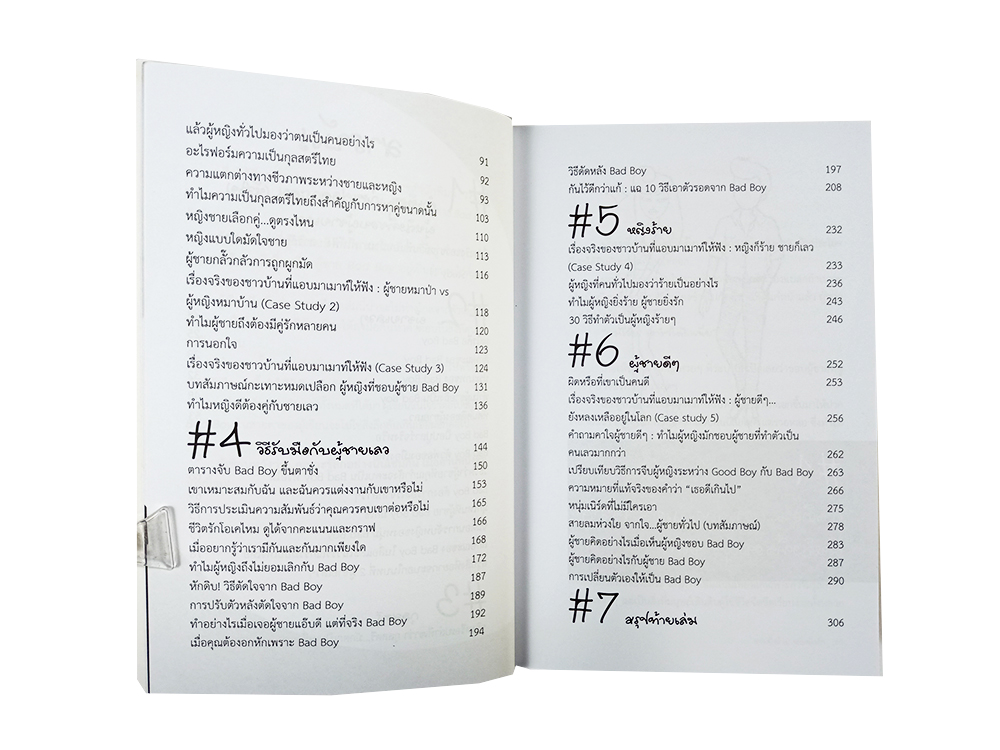 แล้วผู้หญิงทั่วไปมองว่าตนเป็นคนอย่างไร 91
อะไรฟอร์มความเป็นกุลสตรีไทย 92
ความแตกต่างทางชีวภาพระหว่างชายและหญิง 93
ทำไมความเป็นกุลสตรีไทยถึงสำคัญกับการหาคู่ขนาดนั้น 103
หญิงชายเลือกคู่...ดูตรงไหน 110
หญิงแบบใดมัดใจชาย 113
ผู้ชายกลั๊วกลัวการถูกผูกมัด 116
เรื่องจริงของชาวบ้านที่แอบมาเมาท์ให้ฟัง : ผู้ชายหมาป่า vs
ผู้หญิงหมาบ้าน (Case Study 2) 118
ทำไมผู้ชายถึงต้องมีคู่รักหลายคน 120
การนอกใจ 123
เรื่องจริงของชาวบ้านที่แอบมาเมาท์ให้ฟัง (Case Study 3) 124
บทสัมภาษณ์กะเทาะหมดเปลือก ผู้หญิงที่ชอบผู้ชาย Bad Boy 131
ทำไมหญิงดีต้องคู่กับชายเลว 136
#4 วิธีรับมือกับผู้ชายเลว 144
ตารางจับ Bad Boy ขึ้นตาชั่ง 150
เขาเหมาะสมกับฉัน และฉันควรแต่งงานกับเขาหรือไม่ 153
วิธีการประเมินความสัมพันธ์ว่าคุณควรคบเขาต่อหรือไม่ 165
ชีวิตรักโอเคไหม ดูได้จากคะแนนและกราฟ 166
เมื่ออยากรู้ว่าเรามีกันและกันมากเพียงใด 168
ทำไมผู้หญิงถึงไม่ยอมเลิกกับ Bad Boy 172
หักดิบ! วิธีตัดใจจาก Bad Boy 187
การปรับตัวหลังตัดใจจาก Bad Boy 189
ทำอย่างไรเมื่อเจอผู้ชายแอ๊บดี แต่ที่จริง Bad Boy 192
เมื่อคุณต้องอกหักเพราะ Bad Boy 194
วิธีดัดหลัง Bad Boy 197
กันไว้ดีกว่าแก้ : แฉ 10 วิธีเอาตัวรอดจาก Bad Boy 208
#5 หญิงร้าย 232
เรื่องจริงของชาวบ้านที่แอบมาเมาท์ให้ฟัง : หญิงก็ร้าย ชายก็เลว
(Case Study 4) 233
ผู้หญิงที่คนทั่วไปมองว่าร้ายเป็นอย่างไร 236
ทำไมผู้หญิงยิ่งร้าย ผู้ชายยิ่งรัก 243
30 วิธีทำตัวเป็นผู้หญิงร้ายๆ 246
#6 ผู้ชายดีๆ 252
ผิดหรือที่เขาเป็นคนดี 253
เรื่องจริงของชาวบ้านที่แอบมาเมาท์ให้ฟัง : ผู้ชายดีๆ...
ยังหลงเหลืออยู่ในโลก (Case study 5) 256
คำถามคาใจผู้ชายดีๆ : ทำไมผู้หญิงมักชอบผู้ชายที่ทำตัวเป็น
คนเลวมากกว่า 262
เปรียบเทียบวิธีการจีบผู้หญิงระหว่าง Good Boy กับ Bad Boy 263
ความหมายที่แท้จริงของคำว่า "เธอดีเกินไป" 266
หนุ่มเนิร์ดที่ไม่มีใครเอา 275
สายลมห่วงใย จากใจ...ผู้ชายทั่วไป (บทสัมภาษณ์) 278
ผู้ชายคิดอย่างไรเมื่อเห็นผู้หญิงชอบ Bad Boy 283
ผู้ชายคิดอย่างไรกับผู้ชาย Bad Boy 287
การเปลี่ยนตัวเองให้เป็น Bad Boy 290
#7 สรุปท้ายเล่ม 306